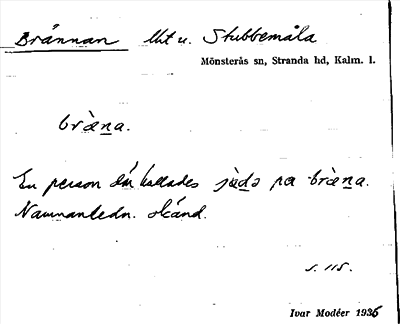 Brännan Uht u. Stubbemåla
Mönsterås sn, Stranda hd, Kalm. l.
bràƞa.
En person där kallades på bràƞa.
Namnanledn. okänd.
s. 115.
Ivar Modéer 1935